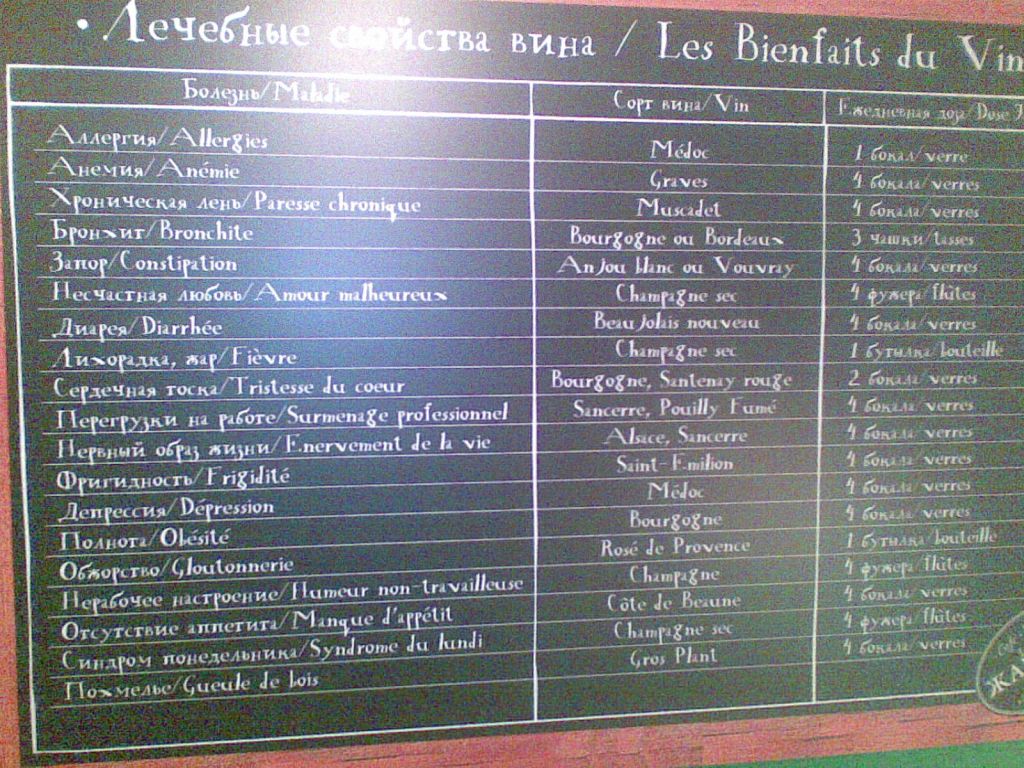 • Лечебные свойства вина / Les Bienfaits du Vin
Болезнь/Maladie Сорт вина/Vin Ежедневная доза/Dose
Аллергия/Allergies Médoc 1 бокал/verre
Анемия/Anémie Graves 4 бокала/verres
Хроническая лень/Paresse chronique Muscadet 4 бокала/verres
Бронхит/Bronchite Bourgogne ou Bordeaux 3 чашки/tasses
Запор/Constipation Anjou blanc ou Vouvray 4 бокала/verres
Несчастная любовь/Amour malheureux Champagne sec 4 фужера/flûtes
Диарея/Diarrhée Beaujolais nouveau 4 бокала/verres
Лихорадка, жар/Fièvre Champagne sec 1 бутылка/bouteille
Сердечная тоска/Tristesse du coeur Bourgogne, Santenay rouge 2 бокала/verres
Перегрузки на работе/Surmenage professionnel Sancerre, Pouilly Fumé 4 бокала/verres
Нервный образ жизни/Enervement de la vie Alsace, Sancerre 4 бокала/verres
Фригидность/Frigidité Saint-Emilion 4 бокала/verres
Депрессия/Dépression Médoc 4 бокала/verres
Полнота/Obésité Bourgogne 4 бокала/verres
Обжорство/Gloutonnerie Rosé de Provence 1 бутылка/bouteille
Нерабочее настроение/Humeur non-travailleuse Champagne 4 фужера/flûtes
Отсутствие аппетита/Manque d'appétit Côte de Beaune 4 бокала/verres
Синдром понедельника/Syndrome du lundi Champagne sec 4 фужера/flûtes
Похмелье/Gueule de bois Gros Plant 4 бокала/verres